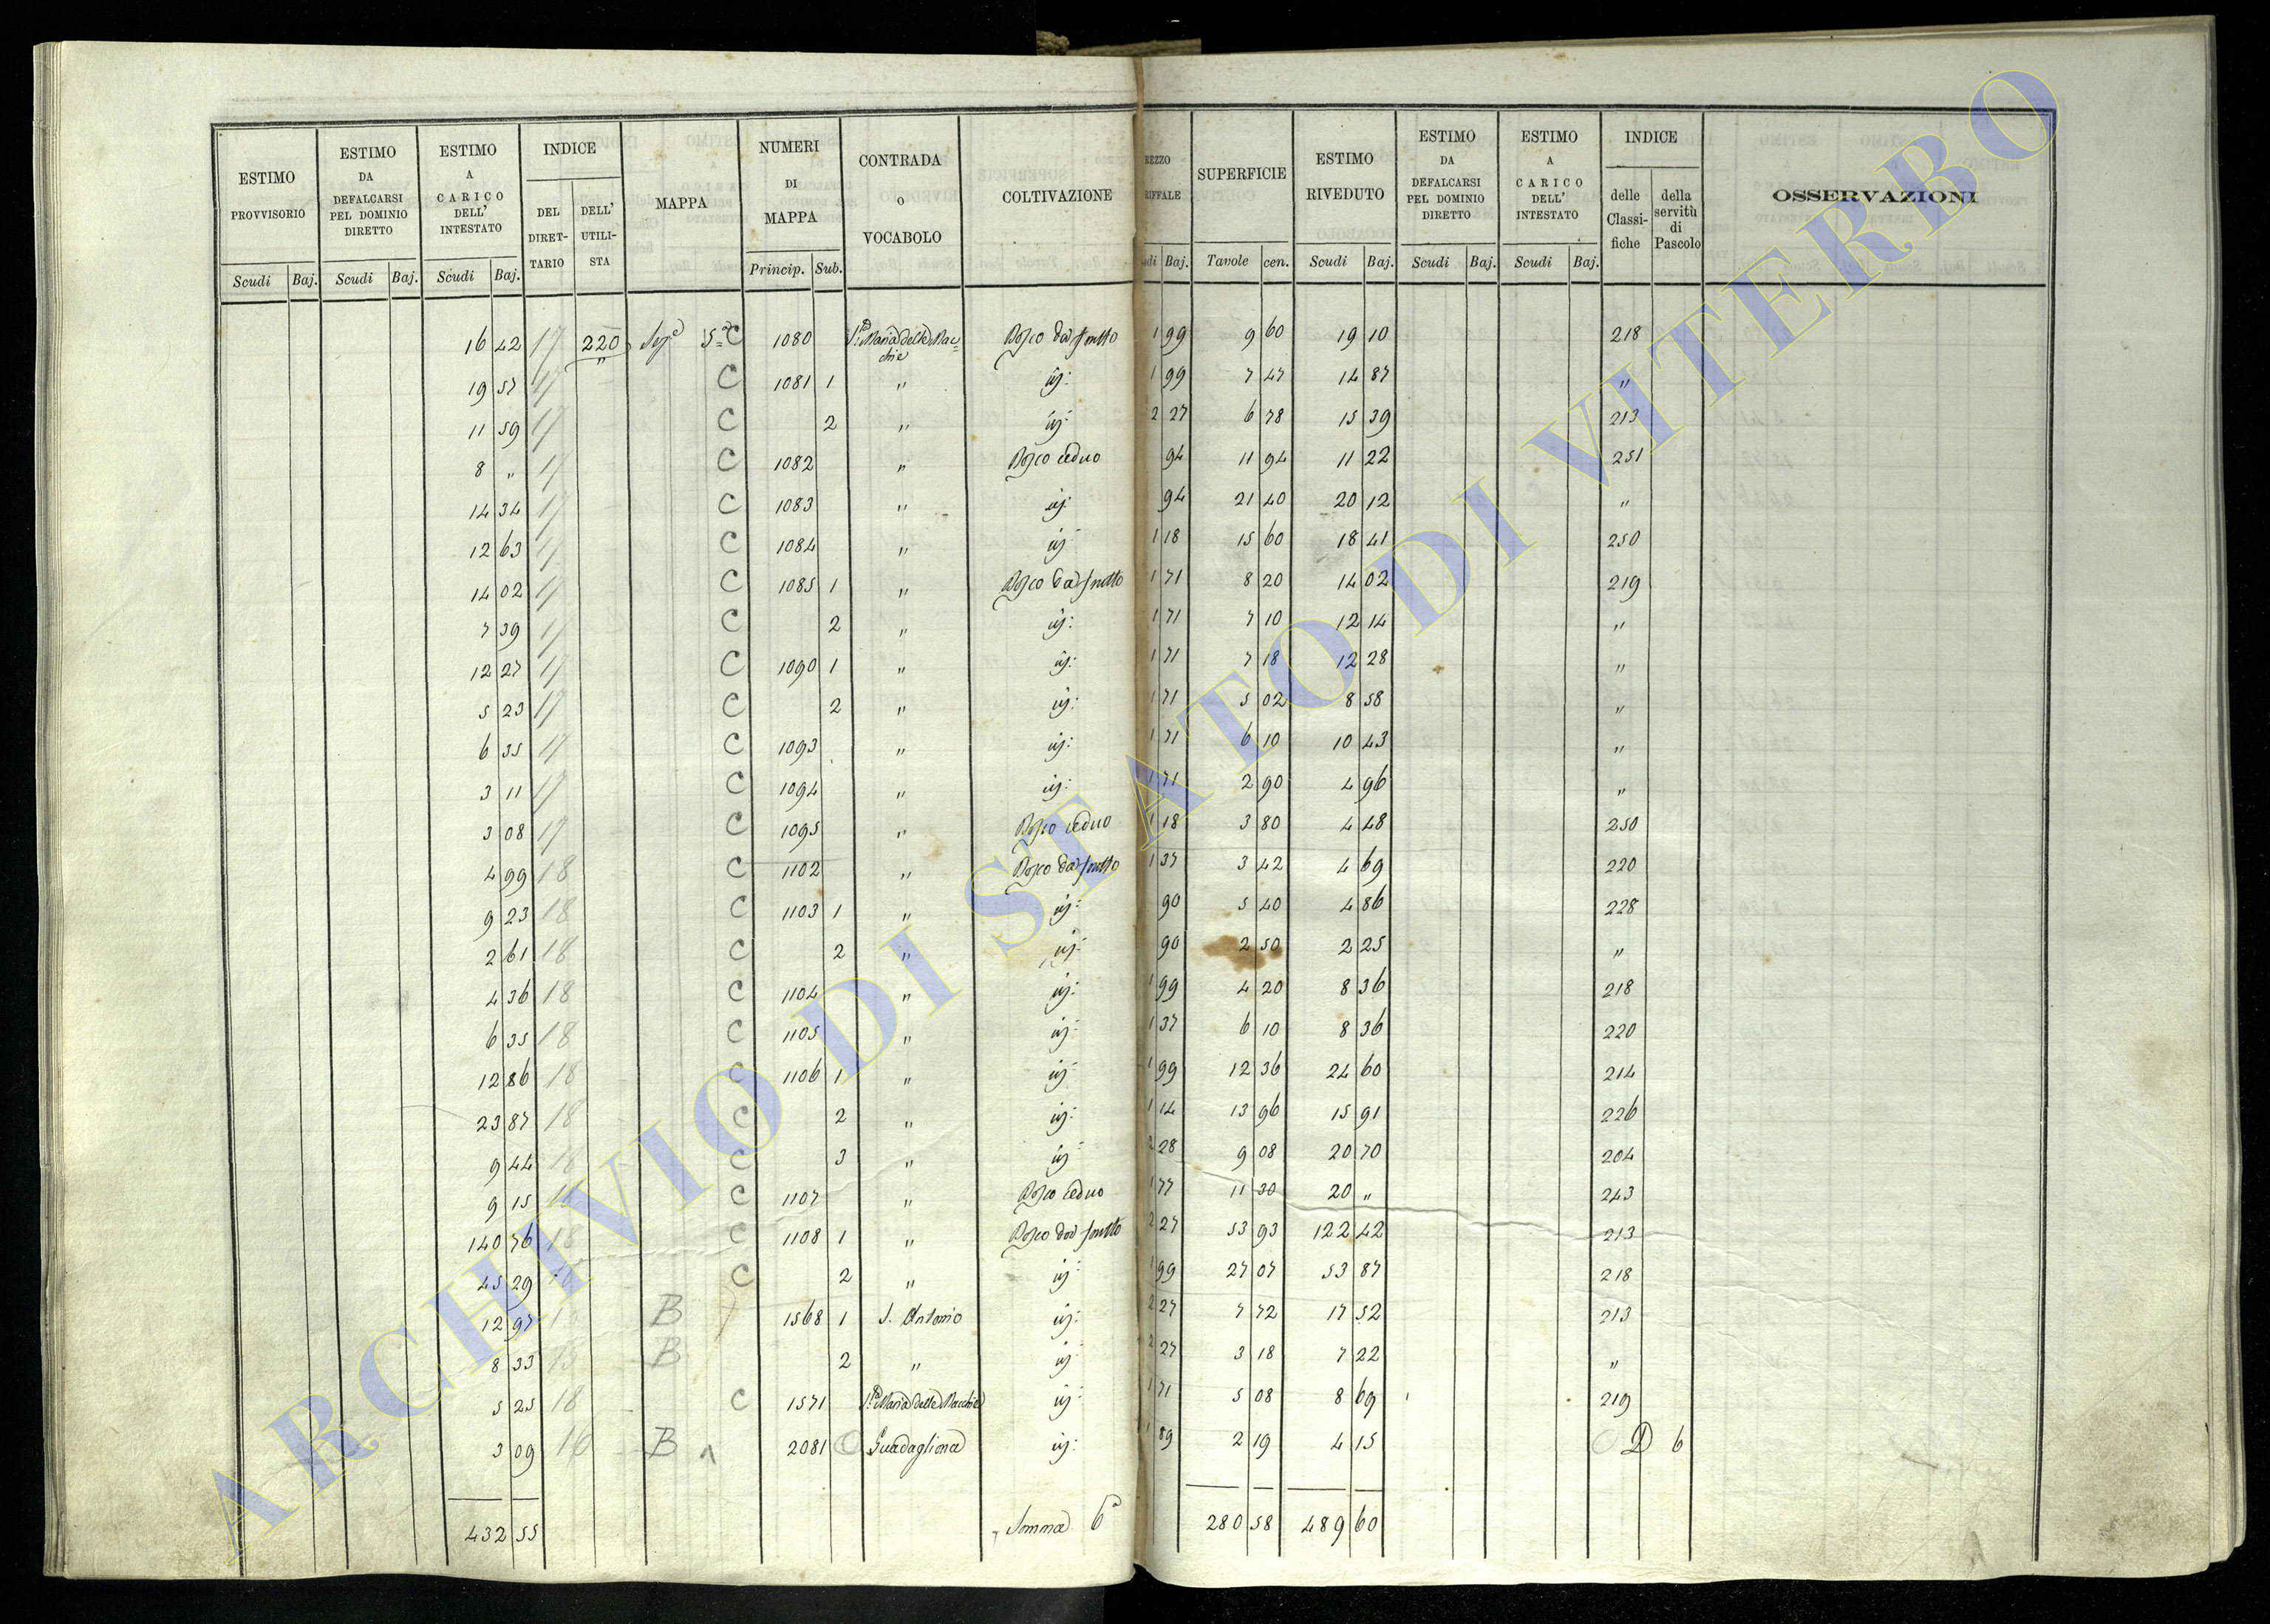 ESTIMO PROVVISORIO Scudi Baj. | ESTIMO DA DEFALCARSI PEL DOMINIO DIRETTO Scudi Baj. | ESTIMO A CARICO DELL' INTESTATO Scudi Baj. | INDICE DEL DIRETTARIO | DELL' UTILISTA | MAPPA | NUMERI DI MAPPA Princip. Sub. | CONTRADA O VOCABOLO | COLTIVAZIONE | REZZO RIFFALE udi Baj. | SUPERFICIE Tavole cen. | ESTIMO RIVEDUTO Scudi Baj. | ESTIMO DA DEFALCARSI PEL DOMINIO DIRETTO Scudi Baj. | ESTIMO A CARICO DELL' INTESTATO Scudi Baj. | INDICE delle Classifiche | della servitù di Pascolo | OSSERVAZIONI
16 42 17 220 C 1080 S.ta Maria delle Macchie Bosco da frutto 1 99 9 60 19 10 218
19 57 17 " C 1081 1 " id: 1 99 7 47 14 87 "
11 59 17 C 2 " id: 2 27 6 78 15 39 213
8 " 17 C 1082 " Bosco ceduo 94 11 94 11 22 251
14 34 17 C 1083 " id: 94 21 40 20 12 "
12 63 17 C 1084 " id: 1 18 15 60 18 41 250
14 02 17 C 1085 1 " Bosco da frutto 1 71 8 20 14 02 219
7 39 17 C 2 " id: 1 71 7 10 12 14 "
12 27 17 C 1090 1 " id: 1 71 7 18 12 28 "
5 23 17 C 2 " id: 1 71 5 02 8 58 "
6 35 17 C 1093 " id: 1 71 6 10 10 43 "
3 11 17 C 1094 " id: 1 71 2 90 4 96 "
3 08 17 C 1095 " Bosco ceduo 1 18 3 80 4 48 250
4 99 18 C 1102 " Bosco da frutto 1 37 3 42 4 69 220
9 23 18 C 1103 1 " id: 90 5 40 4 86 228
2 61 18 C 2 " id: 90 2 50 2 25 "
4 36 18 C 1104 " id: 1 99 4 20 8 36 218
6 35 18 C 1105 " id: 1 37 6 10 8 36 220
12 86 18 C 1106 1 " id: 1 99 12 36 24 60 214
23 87 18 C 2 " id: 1 14 13 96 15 91 226
9 44 18 C 3 " id: 2 28 9 08 20 70 204
9 15 18 C 1107 " Bosco ceduo 1 77 11 30 20 " 243
140 76 18 C 1108 1 " Bosco da frutto 2 27 53 93 122 42 213
45 29 18 C 2 " id: 1 99 27 07 53 87 218
12 97 B 1568 1 S. Antonio id: 2 27 7 72 17 52 213
8 33 15 B 2 " id: 2 27 3 18 7 22 "
5 25 18 C 1571 S.ta Maria delle Macchie id: 1 71 5 08 8 69 219
3 09 16 B 2081 Guadagliona id: 1 89 2 19 4 15 D 6
432 55 Somma 6a 280 58 489 60
ARCHIVIO DI STATO DI VITERBO